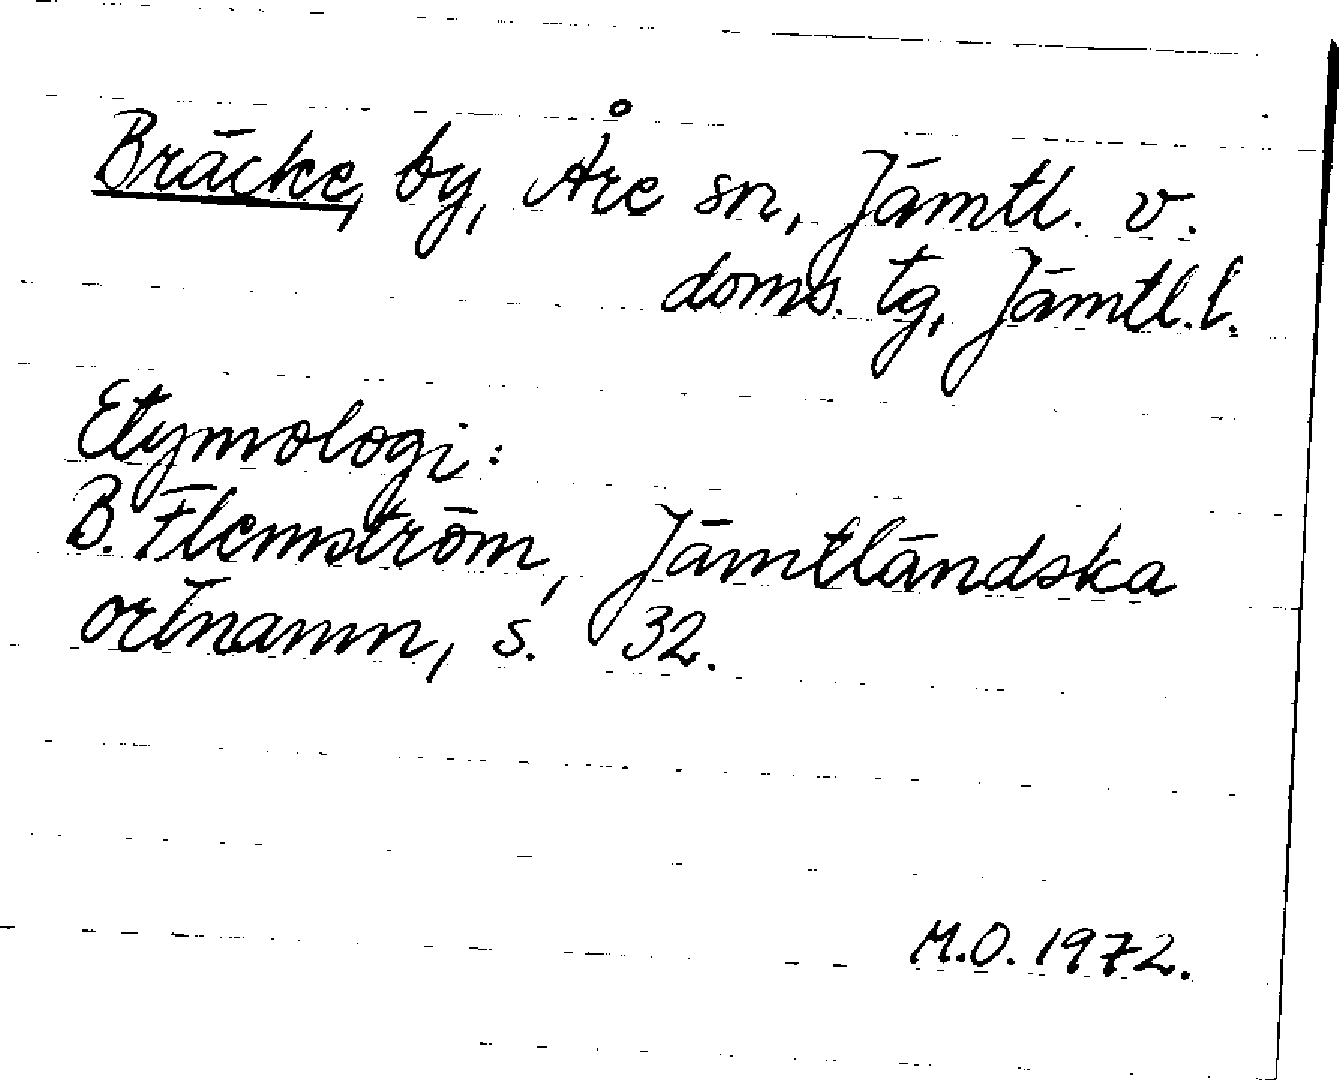 Bräcke, by, Åre sn, Jämtl. v.
doms. tg, Jämtl. l.
Etymologi:
B. Flemström, Jämtländska
ortnamn, s. 32.
M.O. 1972.